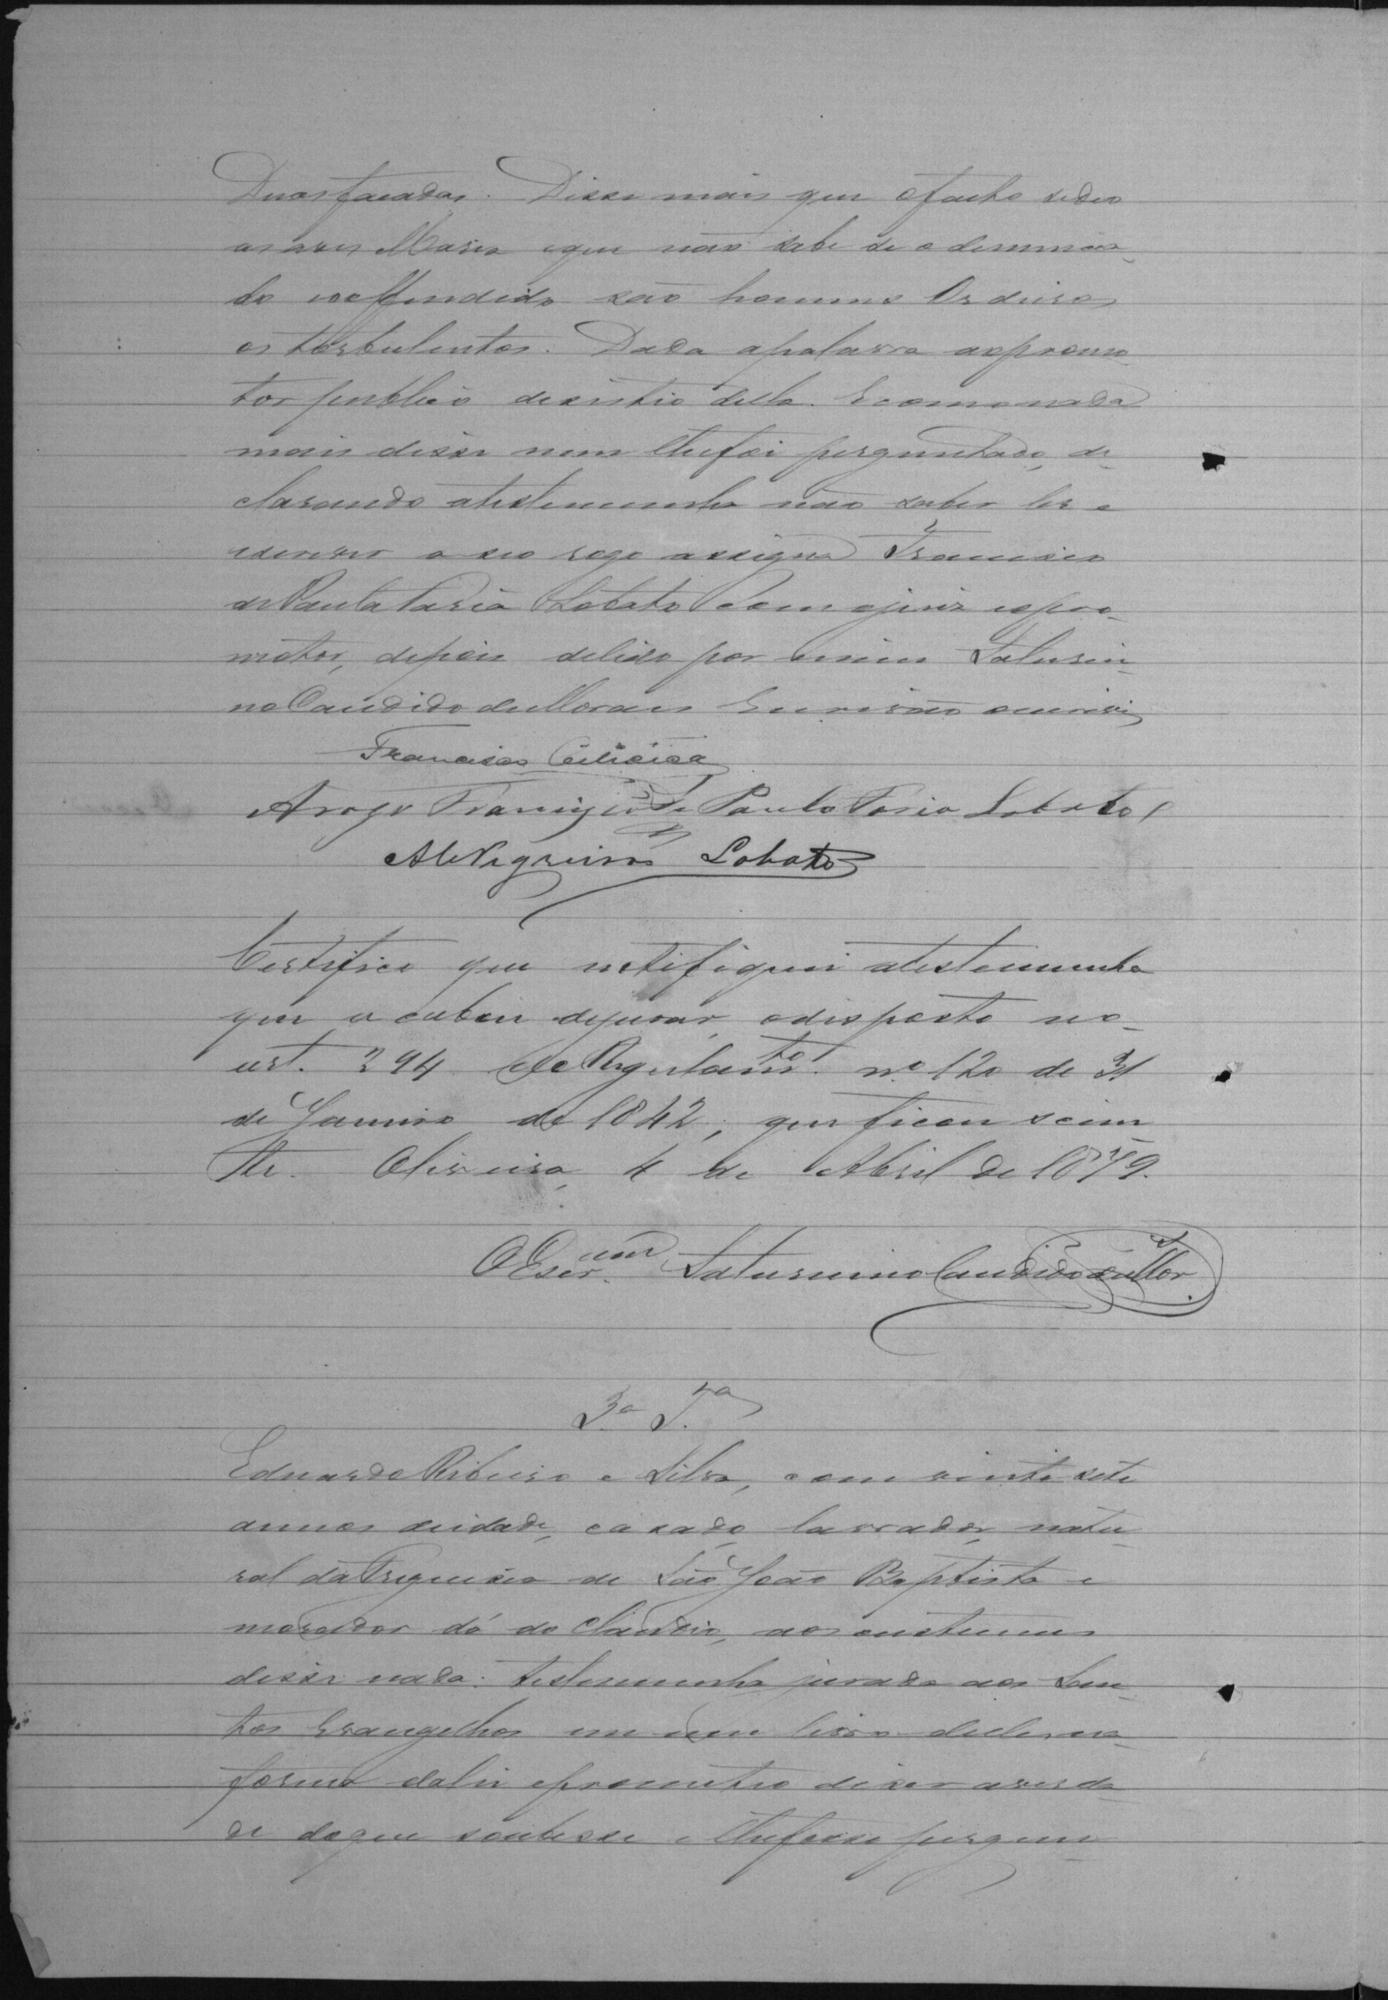 Duas facadas. Disse mais que o facto se deo
as Ave Maria e que não sabe se o denuncia-
do e o offendido são homens Ordeiros
os turbulentos. Dada a palavra ao promo-
tor publico desistio della. E como nada
mais disse nem lhe foi perguntado, de-
clarando a testemunha não saber ler e
escrever a seo rogo assigna Francisco
de Paula Faria Lobato com o juiz e o pro-
motor, depois de lido por mim Saturni-
no Candido de Moraes Escrivão escrevi
Francisco
A rogo Francisco de Paula Faria Lobato
Lobato
Certifico que notifiquei a testemunha
que acabou de jurar, o disposto no-
art. 294 do Regulamto. nº 120 de 31
de Janeiro de 1842, que ficou scien
te. Oliveira, 4 de Abril de 1879.
O Escr.am Saturnino Candido de Mor.
3ª Tª
Eduardo Ribeiro e Silva, com vinte sete
annos de idade, casado, lavrador, natu-
ral da Freguesia de São João Baptista e
morador dó do Claudio, aos custumes
disse nada. testemunha jurada aos San-
tos Evangelhos em um livro delles na-
forma da lei e prometteo dizer a verda-
de do que soubesse e lhe fosse pergun-